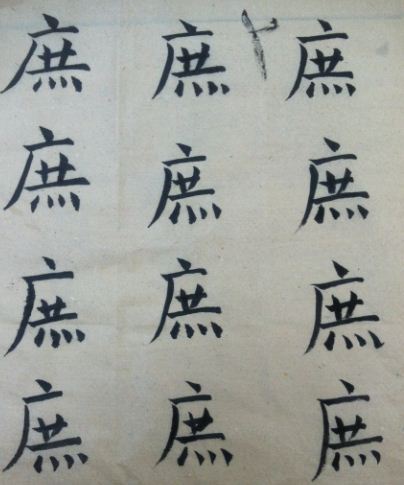 庶 庶 庶
庶 庶 庶
庶 庶 庶
庶 庶 庶